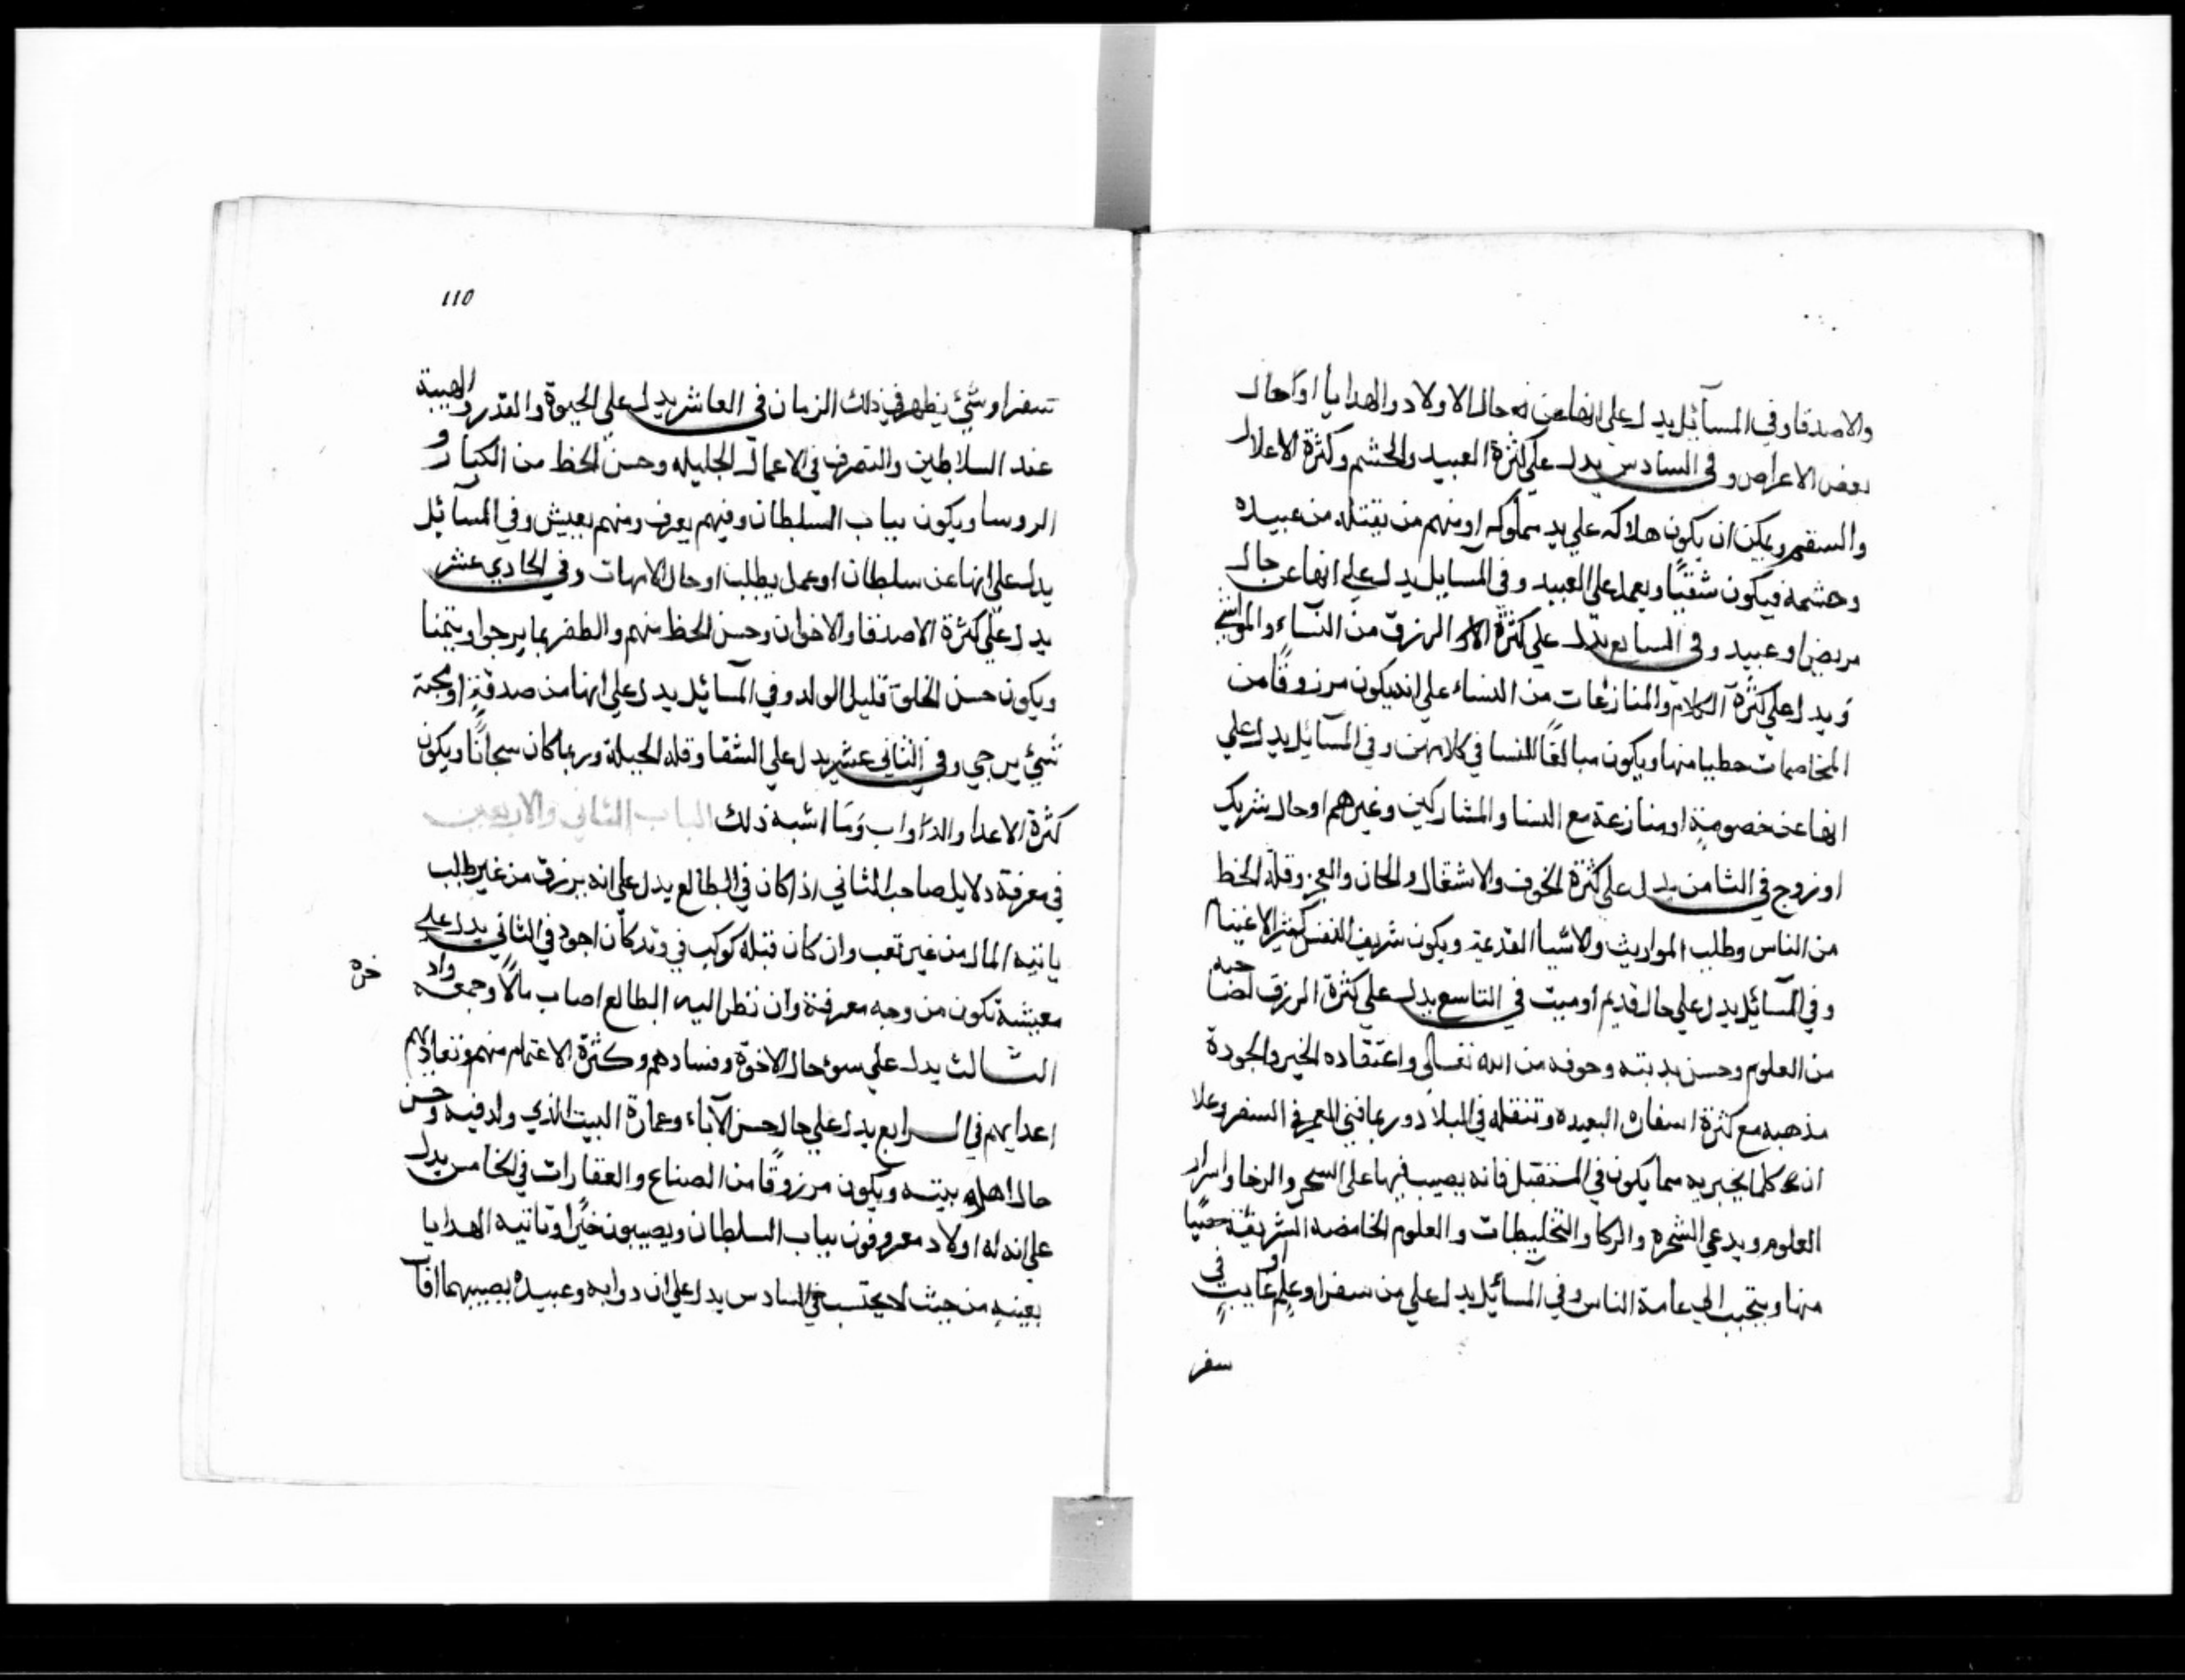 والاصدقا وفي المسآئل يدل على انها عن نه حال الاولاد والهدايا او احال
بعض الاعراض وفى السادس يدل على كثرة العبيد والحشم وكثرة الاعلال
والسقم ويمكن ان يكون هلاكه على يد مملوكه او منهم من يقتله من عبيده
وحشمه فيكون شقيًا ويعمل على العبيد وفى المسايل يدل على انها عن حال
مريض او عبيد وفى السابع يدل على كثرة الرزق من النساء والمواشي
ويدل على كثرة الكلام والمنازعات من النساء على انه يكون مرزوقًا من
المخاصمات حطيا منها ويكون مبالغًا للنسا في كلامهن وفي المسآئل يدل على
انها عن خصومة او منازعة مع النسا والمشاركين وغيرهم او حال شريك
او زوج في الثامن يدل على كثرة الخوف والاشغال والحان والعجز وقلة الحظ
من الناس وطلب المواريث والاشيا القديمة ويكون شريف النفس كثير الاغتمام
وفي المسآئل يدل على حال قديم او ميت في التاسع يدل على كثرة الرزق لصاحبه
من العلوم وحسن يديته وخوفه من الله تعالى واعتقاده الخير والجودة
مذهبه مع كثرة اسفاره البعيده وتنقله في البلاد وربما فني العمر في السفر وعلا
انه كلما يخبر به مما يكون في المستقبل فانه يصيب فيها على السحر والرخا واسرار
العلوم ويدعي الشحره والركا والتخليطات والعلوم الخامضه الشريفة حصيًا
منها ويتجبب الى عامة الناس وفي المسآئل يدل على من سفر او علم او غايب في
سفر
110
تسفر او شئ يظهر في ذلك الزمان فى العاشر يدل على الحيوة والقدر والهيبة
عند السلاطين والتصرف في الاعمال الجليله وحسن الحظ من الكبار و
الروسا ويكون بباب السلطان وفيهم يعرف ومنهم يعيش وفي المسآئل
يدل على انها عن سلطان او عمل يطلب او حال الامهات وفى الحادي عشر
يدل على كثرة الاصدقا والاخوان وحسن الحظ منهم والظفر بما يرجوا ويتمنا
ويكون حسن الخلق قليل الولد وفي المسآئل يدل على انها من صدقة او محبة
شئ يرجي وفى الثانى عشر يدل على الشقا وقله الحيلة وربما كان سجانًا ويكون
كثرة الاعدا والدواب وما اشبه ذلك الباب الثاني والاربعين
في معرفة دلايل صاحب الثاني اذا كان في الطالع يدل على انه يرزق من غير طلب
ياتيه المال من غير تعب وان كان قبله كوكب في وتد كان اجود في الثاني يدل على
معيشة تكون من وجه معرفة وان نظر اليه الطالع اصاب مالًا وجمعه واد
خره
الثالث يدل على سوء حال الاخوة وفسادهم وكثرة الاغتمام منهم وتعاديهم
اعدايهم في الرابع يدل على حال حسن الآباء وعمارة البيت الذي ولد فيه وحسن
حال اهل بيته ويكون مرزوقًا من الصناع والعقارات في الخامس يدل
على انه له اولاد معروفون بباب السلطان ويصيبون خيرًا وتاتيه الهدايا
بعينه من حيث لا يحتسب في السادس يدل على ان دوابه وعبيده يصيبهما افآت